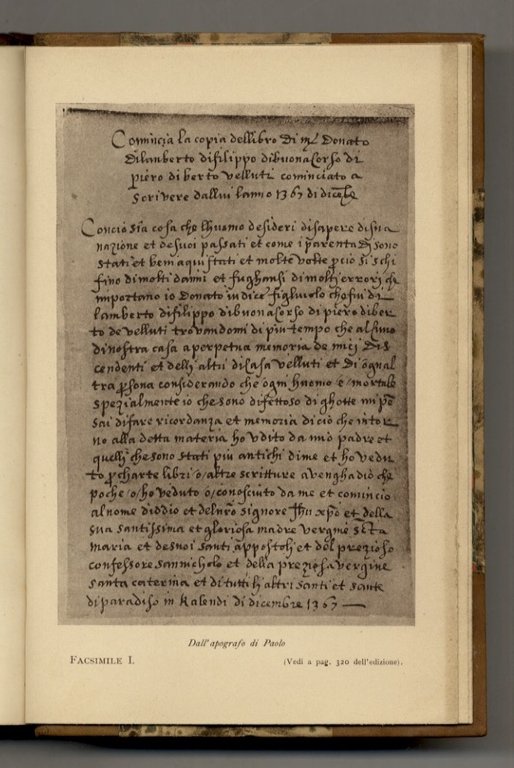 Comincia la copia dellibro di mr Donato
dilamberto difilippo dibuonacorso di
piero di berto velluti cominciato a
scrivere dallui lanno 1367 di dicebre
Concio sia cosa che lhuomo desideri disapere disua
nazione et desuoi passati et come i parentadi sono
stati et bem aquistati et molte volte pcio si schi
fino di molti danni et fughansi di molti errori ch
importano io Donato iudice figluiolo chefui di
lamberto difilippo dibuonacorso di piero diber
to de velluti trovandomi di piu tempo che alsuno
dinostra casa a perpetua memoria de miej dis
cendenti et delli altri dicasa velluti et di ognal
tra psona considerando che ogni huomo e mortale
spezialmente io che sono difettoso di ghotte mi pe
sai difare ricordanza et memoria di cio che intor
no alla detta materia ho udito da mio padre et
quelli che sono stati più antichi dime et ho vedu
to p charte libri o/ altre scritture avengha dio che
poche /o/ ho veduto o/ conosciuto da me et comincio
al nome diddio et delnro signore Jhu xpo et della
sua santissima et gloriosa madre vergine sta
maria et desuoi santi appostoli et del prezioso
confessore sanmichelo et della preziosa vergine
santa caterina et di tutti li altri santi et sante
di paradiso in kalendi di dicembre 1367
Dall'apografo di Paolo
FACSIMILE I. (Vedi a pag. 320 dell'edizione).